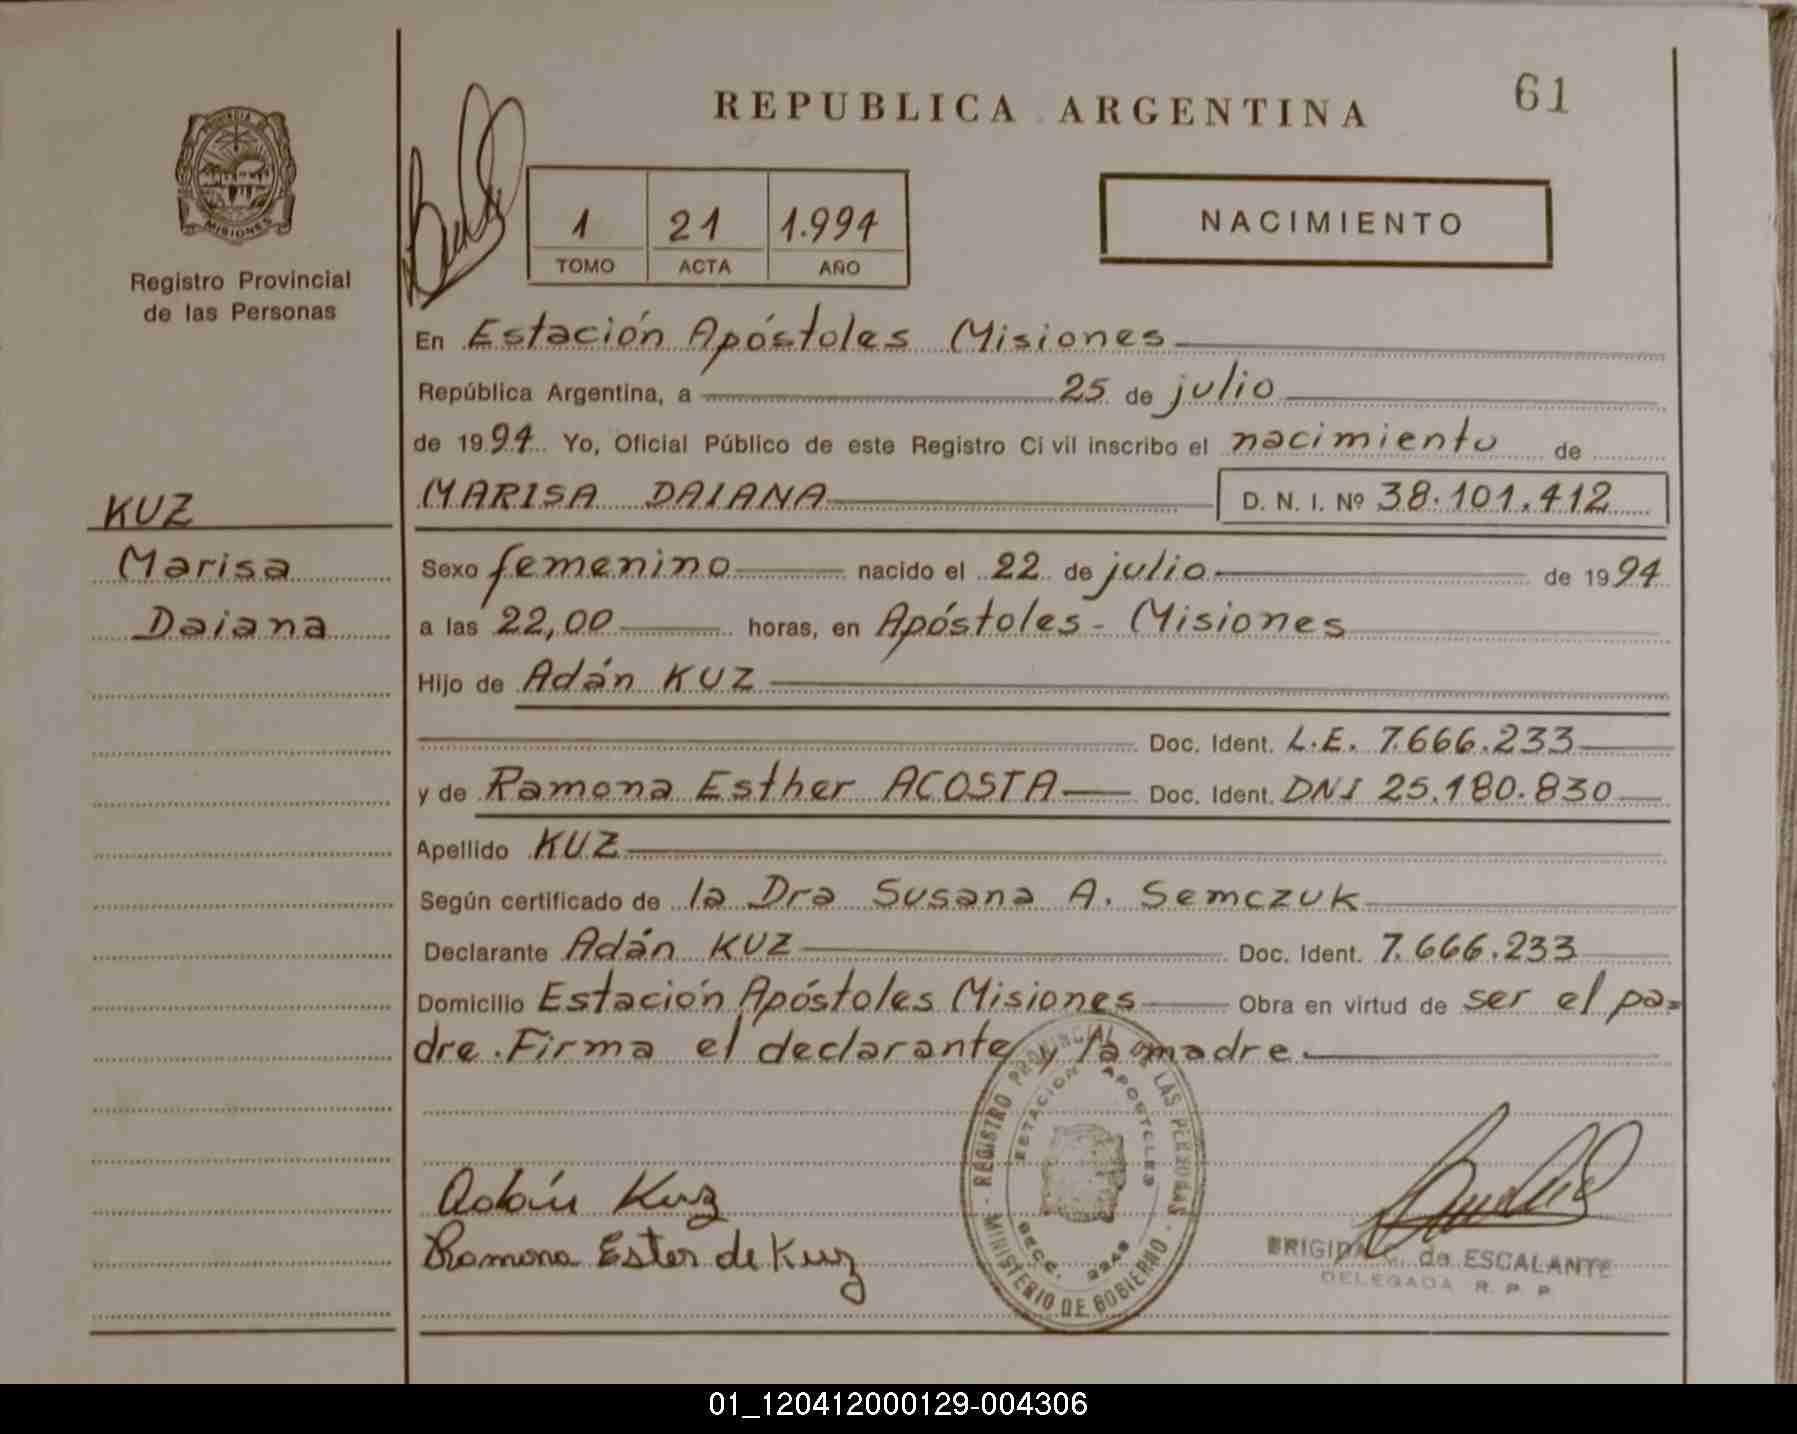 REPUBLICA ARGENTINA
61
PROVINCIA DE
MISIONES
Registro Provincial
de las Personas
1 21 1.994
TOMO ACTA AÑO
NACIMIENTO
En Estación Apóstoles Misiones
República Argentina, a 25 de julio
de 1994 Yo, Oficial Público de este Registro Civil inscribo el nacimiento de
MARISA DAIANA D. N. I. Nº 38.101.412
KUZ
Marisa
Daiana
Sexo femenino nacido el 22 de julio de 1994
a las 22,00 horas, en Apóstoles - Misiones
Hijo de Adán KUZ
Doc. Ident. L.E. 7.666.233
y de Ramona Esther ACOSTA Doc. Ident. DNI 25.180.830
Apellido KUZ
Según certificado de la Dra Susana A. Semczuk
Declarante Adán KUZ Doc. Ident. 7.666.233
Domicilio Estación Apóstoles Misiones Obra en virtud de ser el pa=
dre. Firma el declarante y la madre
REGISTRO PROVINCIAL DE LAS PERSONAS
ESTACION APOSTOLES
SECC.
MINISTERIO DE GOBIERNO
Adán Kuz
Ramona Ester de Kuz
BRIGIDA de ESCALANTE
DELEGADA R. P. P.
01_120412000129-004306